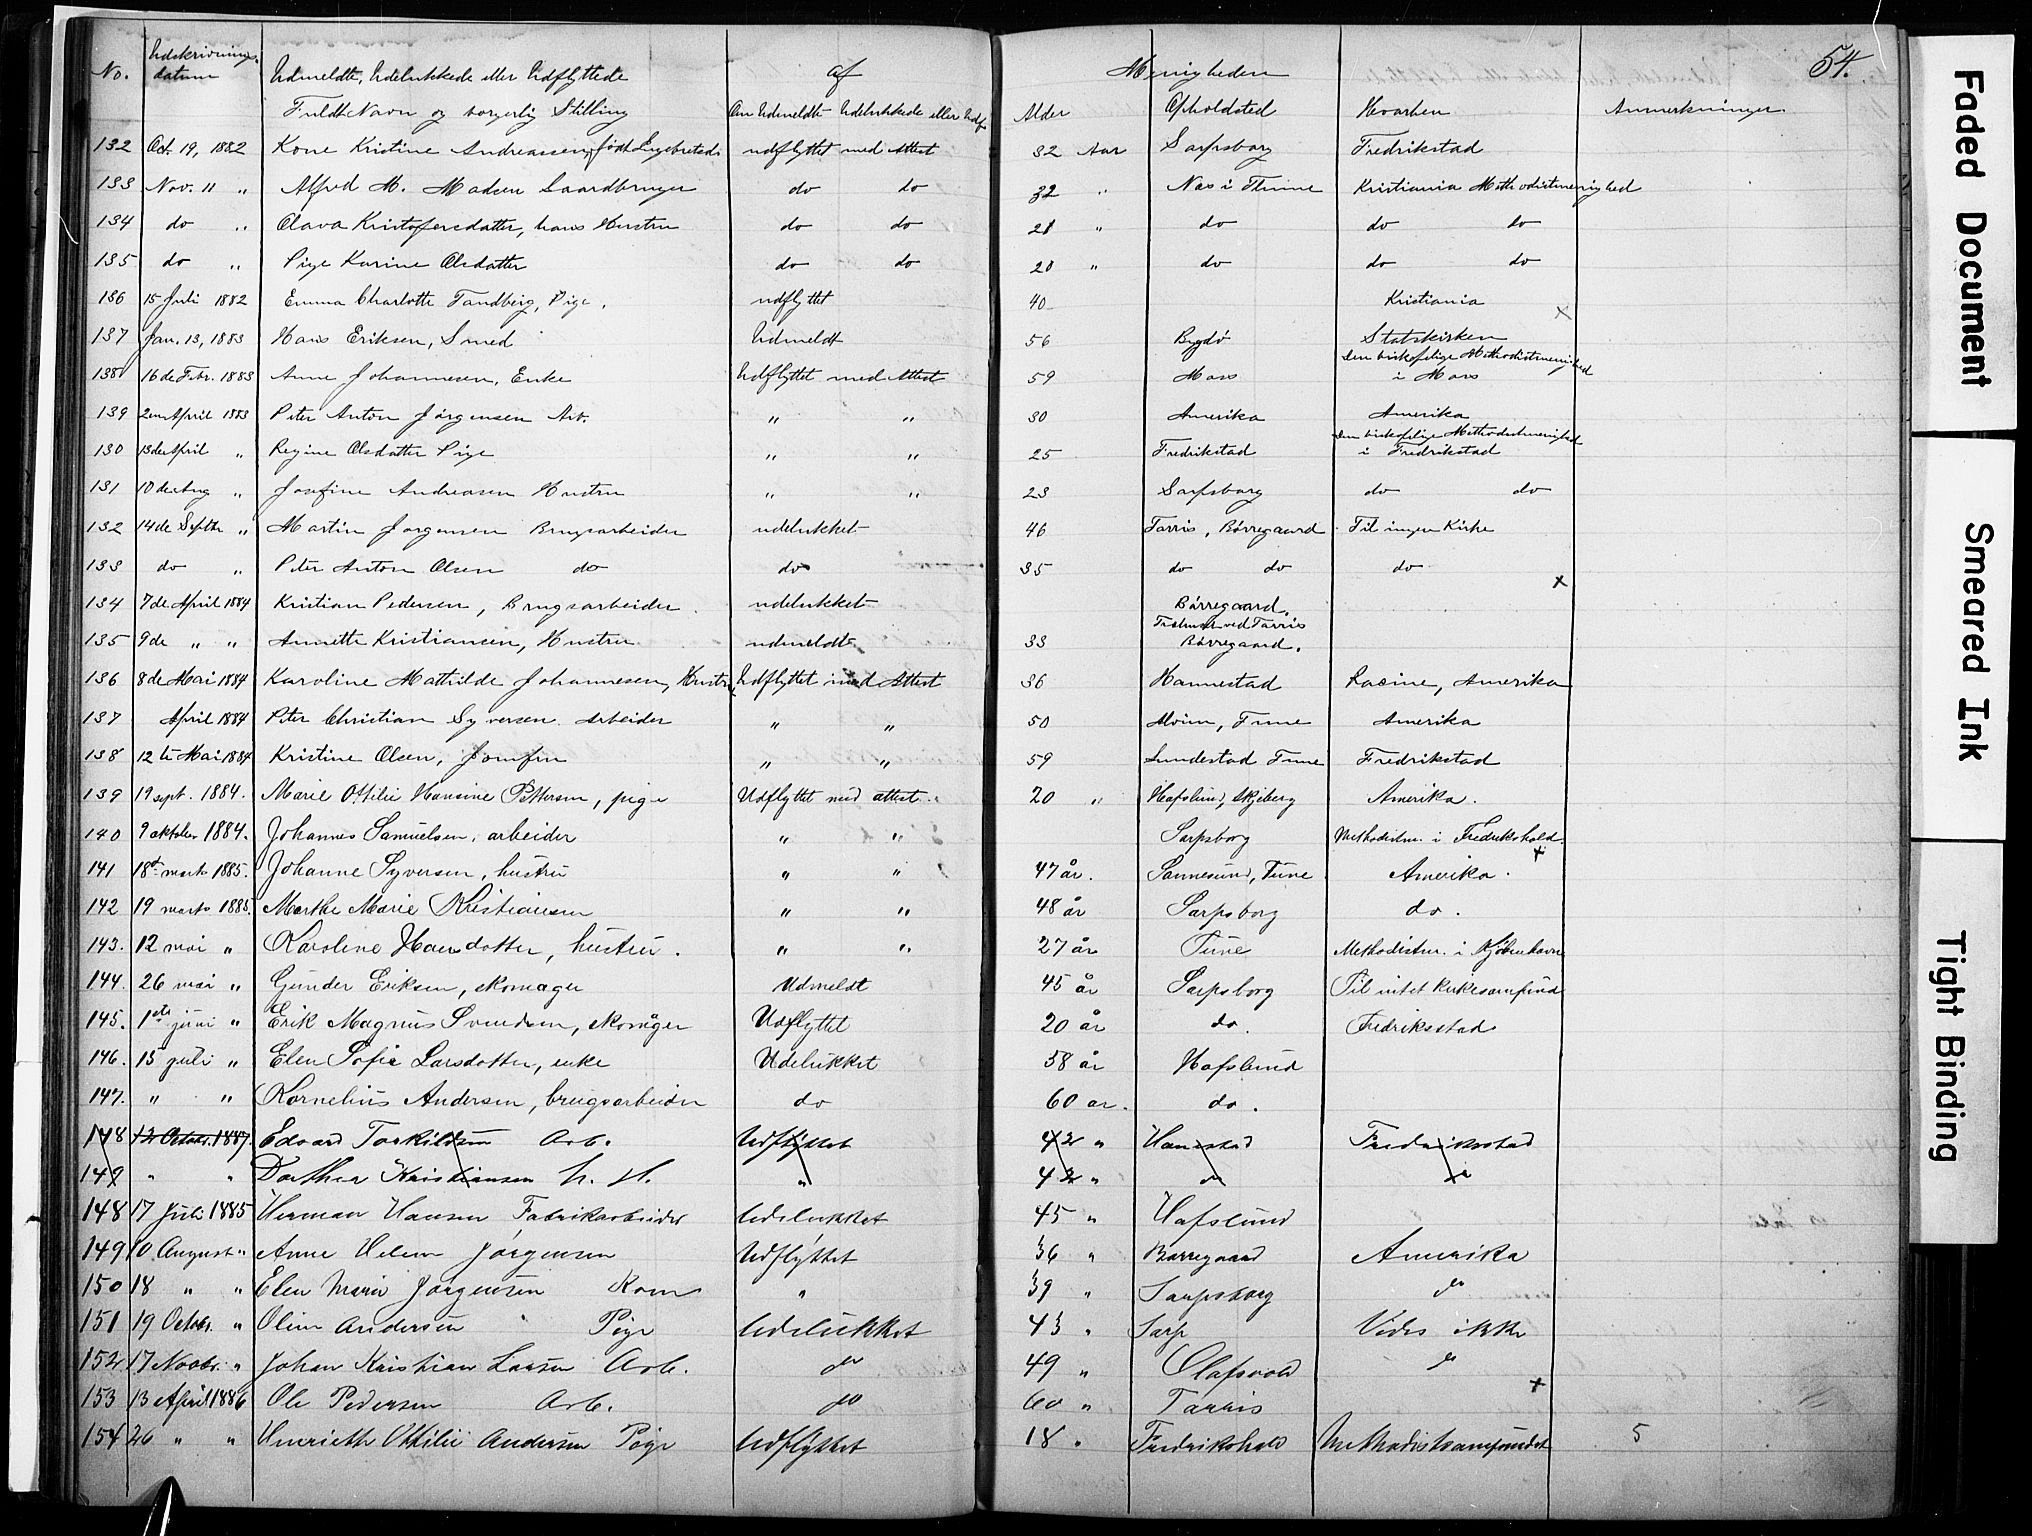 54.
No. Udskrivnings- datum Udmeldte, Udelukkede eller Udflyttede af Menigheden
Fuldt Navn og borgerlig Stilling Om Udmeldt Udelukkede eller Udfl. Alder Opholdsted Hvorhen Anmerkninger
132 Oct. 19, 1882 Kone Kristine Andreassen, født Engebretsd. udflyttet med Attest 32 Aar Sarpsborg Fredrikstad
133 Nov. 11 " Alfred M. Madsen Gaardbruger do do 32 " Næs i Thune Kristiania Methodistmenighed
134 do " Olava Kristofersdatter, hans Hustru do do 28 " do do do
135 do " Pige Karine Olsdatter do do 20 " do do do
136 15 Juli 1882 Emma Charlotte Tandberg, Pige. udflyttet 40 Kristiania
137 Jan. 13, 1883 Hans Eriksen, Smed Udmeldt 56 Bygdø Statskirken
138 16de Febr. 1883 Anne Johannesen, Enke Udflyttet med Attest 59 Moss Den biskopelige Methodistmenighed i Moss
139 2en April 1883 Peter Anton Jørgensen Arb. " " 30 Amerika Amerika
130 13de April " Regine Olsdatter Pige " " 25 Fredrikstad Den biskopelige Methodistmenighed i Fredrikstad
131 10de Aug " Josefine Andreasen Hustru " " 23 Sarpsborg do do
132 14de Septbr " Martin Jorgensen Brugsarbeider udelukket 46 Tarris, Børregaard Til ingen Kirke
133 do " Peter Anton Olsen do do 35 do do do
134 7de April 1884 Kristian Pedersen, Brugsarbeider. udelukket Børregaard.
135 9de " " Annette Kristiansen, Hustru udmeldt 33 ved Tarris Børregaard.
136 8de Mai 1884 Karoline Mathilde Johannesen, Hustru Udflyttet med Attest 36 Hannestad Racine, Amerika
137 April 1884 Peter Christian Syversen Arbeider " " 50 Alvim, Tune Amerika
138 12te Mai 1884 Kristine Olsen, Jomfru " " 59 Sundestad Tune Fredrikstad
139 19 sept. 1884. Marie Ottilie Hansine Pettersen, pige Udflyttet med attest. 20 " Hafslund, Skjeberg Amerika.
140 9 oktober 1884. Johannes Samuelsen, arbeider " " Sarpsborg Methodistm. i Fredrikshald.
141 18de marts 1885. Johanne Syversen, hustru " " 47 år. Sannesund, Tune Amerika.
142 19 marts 1885. Marthe Marie Kristiansen " " 48 år Sarpsborg do.
143. 12 mai " Karoline Hansdatter, hustru. " " 27 år Tune Methodistm. i Kjøbenhavn
144. 26 mai " Gunder Eriksen, skomager Udmeldt 45 år Sarpsborg Til intet kirkesamfund
145. 1ste juni " Erik Magnus Svendsen, skomager Udflyttet 20 år do. Fredriksstad
146. 15 juli " Elen Sofie Larsdatter, enke Udelukket 58 år Hafslund
147. " " Kornelius Andersen, brugsarbeider do 60 år. do.
148 12 Octobr. 1887. Edvard Torkildsen Arb. Udflyttet 42 " Hanestad Fredriksstad
149 " " Dorthea Kristiansen h. H. " 42 " do do
148 17 Juli 1885 Herman Hansen Fabrikarbeider Udelukket 45 " Hafslund
149 10 August " Anne Helene Jørgensen Udflyttet 36 " Borregaard Amerika
150 18 " " Elen Marie Jørgensen Kone " 39 " Sarpsborg do
151 19 Octobr. " Oline Andersen Pige Udelukket 43 " Sarp Vides ikke
152 17 Novbr. " Johan Kristian Larsen Arb. do 49 " Olafsvold do
153 13 April 1886 Ole Pedersen Arb. do 60 " Tarris
154 26 " " Henriette Othilie Andersen Pige Udflyttet 18 " Fredrikshald Methodistsamfundet 5
Faded Document
Smeared Ink
Tight Binding